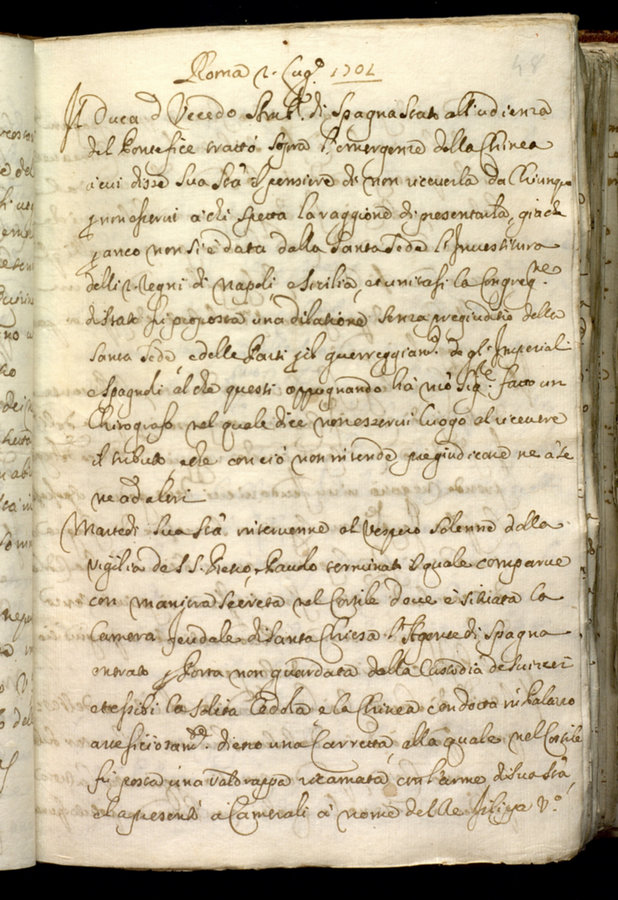 48
Roma 2. Lug.º 1701
Il Duca d Uccedo Amb.r di Spagna stato all'udienza
del Pontefice trattò sopra l'emergenze della Chinea
à cui disse Sua Stà il pensiere di non riceverla da chiunque
p non esservi à chi spetta la raggione di presentarla, già che
p anco non si è data dalla Santa Sede l'Investitura
delli 2. Regni di Napoli e Sicilia, et unitasi la Congreg.ne
di Stato fù proposta una dilatione senza pregiuditio della
Santa Sede, e delle Parti p il guerreggiam.to de gl'Imperiali
e Spagnoli, al che questi oppugnando hà N'rō Sig.re fatto un
Chirografo nel quale dice non esservi luogo al ricevere
il tributo, e che con ciò non intende pregiudicare ne à se
ne ad altri
Martedi Sua Stà intervenne al Vespero solenne della
Vigilia de SS. Pietro, e Paulo terminato il quale comparve
con maniera secreta nel Cortile dove è situata la
Camera feudale di Santa Chiesa l'Agente di Spagna
entrato p Porta non guardata dalla Custodia de Svizzeri
et essibì la solita Cedola e la Chinea condotta in Palazzo
artificiosam.te dietro una Carretta, alla quale nel Cortile
fù posta una valdrappa ricamata con l'arme di Sua Stà
e la presentò a Camerali à nome del Re Filippo V.º